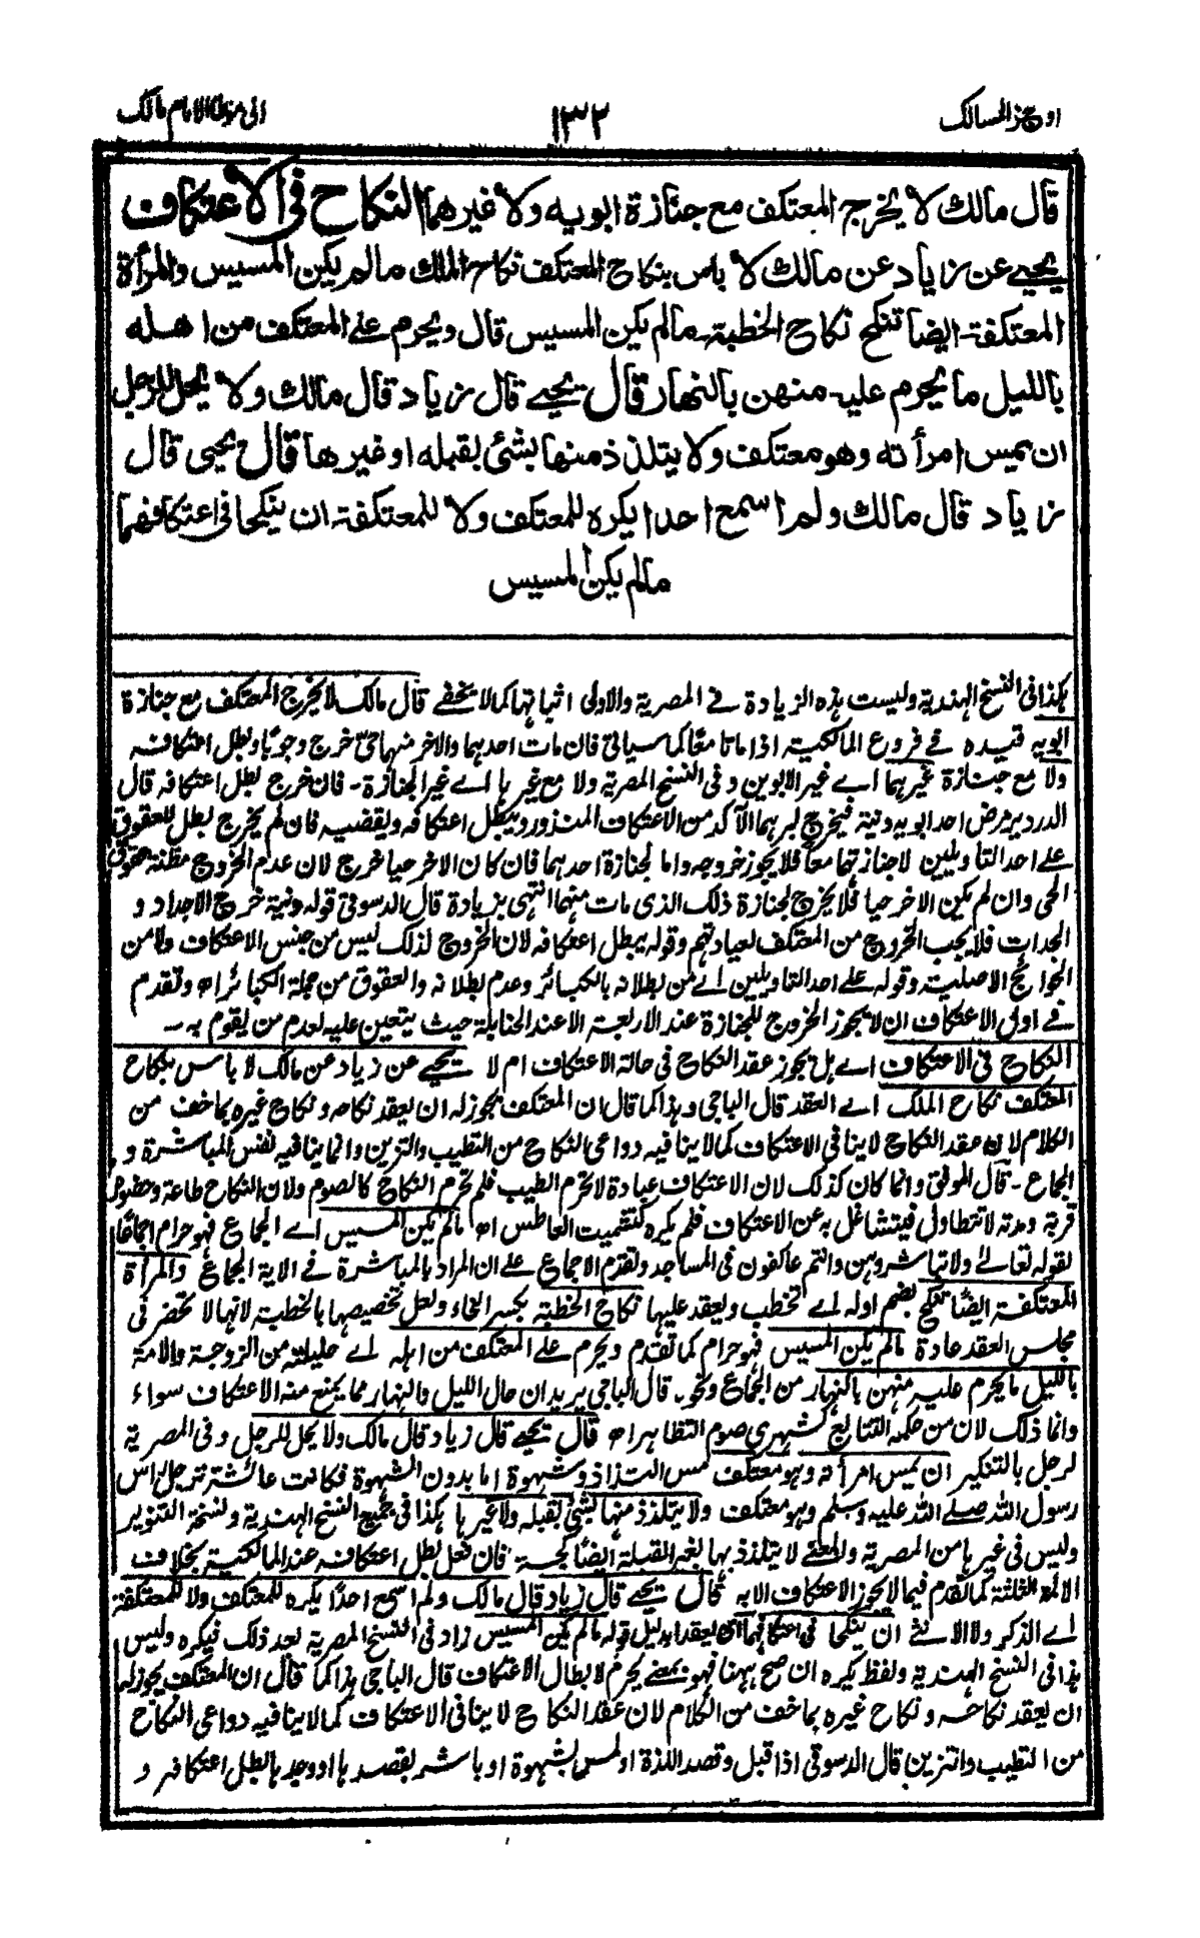 اوجز المسالك
١٣٢
الى موطا الامام مالك
قال مالك لا يخرج المعتكف مع جنازة ابويه ولا غيرهما النكاح فى الاعتكاف
يحيے عن زياد عن مالك لا باس بنكاح المعتكف نكاح الملك مالم يكن المسيس والمرأة
المعتكفة ايضا تنكح نكاح الخطبة مالم يكن المسيس قال ويحرم علے المعتكف من اهله
بالليل ما يحرم عليه منهن بالنهار قال يحيے قال زياد قال مالك ولا يحل للرجل
ان يمس امرأته وهو معتكف ولا يتلذذ منها بشئ بقبله او غيرها قال يحيى قال
زياد قال مالك ولم اسمع احدا يكره للمعتكف ولا للمعتكفة ان ينكحا فى اعتكافهما
مالم يكن المسيس
هكذا فى النسخ الهندية وليست هذه الزيادة فے المصرية والاولى اثباتها كمالا يخفے قال مالك لا يخرج المعتكف مع جنازة
ابويه قيده فے فروع المالكية اذا ماتا معًا كما سياتى فان مات احدهما والاخر منهما حىّ خرج وجوبًا وبطل اعتكافه
ولا مع جنازة غيرهما اے غير الابوين وفى النسخ المصرية ولا مع غيرها اے غير الجنازة - فان خرج بطل اعتكافه قال
الدردير مرض احد ابويه دنية فيخرج لبرهما الآكد من الاعتكاف المنذور ويبطل اعتكافه ويقضيه فان لم يخرج بطل للعقوق
علے احد التاويلين لا جنازتهما معًا فلا يجوز خروجه واما لجنازة احدهما فان كان الاخر حيا خرج لان عدم الخروج مظنة عقوق
الحى وان لم يكن الاخر حيا فلا يخرج لجنازة ذلك الذى مات منهما انتهى بزيادة قال الدسوقى قوله دنية خرج الاجداد و
الجدات فلا يجب الخروج من المعتكف لعيادتهم وقوله يبطل اعتكافه لان الخروج لذلك ليس من جنس الاعتكاف ولا من
الحوائج الاصلية وقوله علے احد التاويلين اے من بطلانه بالكبائر وعدم بطلانه والعقوق من جملة الكبائر اه وتقدم
فے اولى الاعتكاف ان لا يجوز الخروج للجنازة عند الاربعة الا عند الحنابلة حيث يتعين عليه لعدم من يقوم به -
النكاح فى الاعتكاف اے هل يجوز عقد النكاح فى حالة الاعتكاف ام لا يحيے عن زياد عن مالك لا باس بنكاح
المعتكف نكاح الملك اے العقد قال الباجى وهذا كما قال ان المعتكف يجوز له ان يعقد نكاحه ونكاح غيره بما خف من
الكلام لان عقد النكاح لا ينافى الاعتكاف كمالا ينافيه دواعى النكاح من التطيب والتزين وانما ينافيه نفس المباشرة و
الجماع - قال الموفق وانما كان كذلك لان الاعتكاف عبادة لا تحرم الطيب فلم تحرم النكاح كالصوم ولان النكاح طاعة وحضوره
قربة ومدته لا تتطاول فيتشاغل به عن الاعتكاف فلم يكره كتشميت العاطس اه مالم يكن المسيس اے الجماع فهو حرام اجماعًا
لقوله تعالے ولا تباشروهن وانتم عاكفون فى المساجد وتقدم الاجماع علے ان المراد بالمباشرة فے الاية الجماع والمرأة
المعتكفة ايضًا تنكح بضم اوله اے تخطب ويعقد عليها نكاح الخطبة بكسر الخاء ولعل تخصيصها بالخطبة لانها لا تحضر فى
مجالس العقد عادة مالم يكن المسيس فهو حرام كما تقدم ويحرم علے المعتكف من اهله اے حليلته من الزوجة والامة
بالليل ما يحرم عليه منهن بالنهار من الجماع ونحوه قال الباجى يريد ان حال الليل والنهار مما يمنع منه الاعتكاف سواء
وانما ذلك لان من حكمه التتابع كشهرى صوم التظاهر اه قال يحيے قال زياد قال مالك ولا يحل للرجل وفى المصرية
لرجل بالتنكير ان يمس امرأته وهو معتكف مس التذاذ وشهوة اما بدون الشهوة فكانت عائشة ترجل راس
رسول الله صلے الله عليه وسلم وهو معتكف ولا يتلذذ منها بشئ بقبله ولا غيرها هكذا فى جميع النسخ الهندية ونسخة التنوير
وليس فى غيرها من المصرية والمعنے لا يتلذذ بها بغير القبلة ايضًا كجسة فان فعل بطل اعتكافه عند المالكية بخلاف
الائمة الثلثة كما تقدم فيما لا يجوز الاعتكاف الا به قال يحيے قال زياد قال مالك ولم اسمع احدًا يكره للمعتكف ولا للمعتكفة
اے الذكر ولا الانثے ان ينكحا فى اعتكافهما اى يعقدا بدليل قوله مالم يكن المسيس زاد فى النسخ المصرية بعد ذلك فيكره وليس
هذا فى النسخ الهندية ولفظ يكره ان صح ههنا فهو بمعنے يحرم لابطال الاعتكاف قال الباجى هذا كما قال ان المعتكف يجوز له
ان يعقد نكاحه ونكاح غيره بما خف من الكلام لان عقد النكاح لا ينافى الاعتكاف كمالا ينافيه دواعى النكاح
من التطيب والتزين قال الدسوقى اذا قبل وقصد اللذة او لمس بشهوة او باشر بقصدها او وجدها بطل اعتكافه و